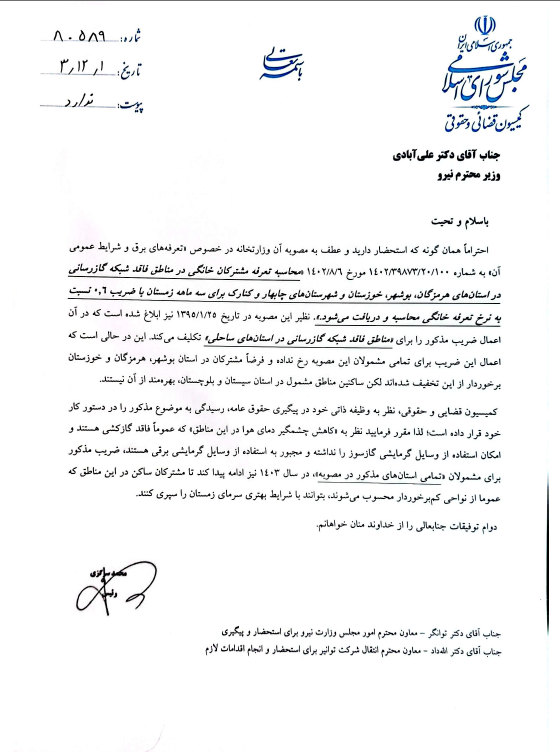 جمهوری اسلامی ایران
مجلس شورای اسلامی
کمیسیون قضائی و حقوقی
باسمه تعالی
شماره: ۸۰۵۸۹
تاریخ: ۳,۱۲,۱
پیوست: ندارد
جناب آقای دکتر علی‌آبادی
وزیر محترم نیرو
باسلام و تحیت
احتراماً همان گونه که استحضار دارید و عطف به مصوبه آن وزارتخانه در خصوص «تعرفه‌های برق و شرایط عمومی
آن» به شماره ۱۴۰۲/۳۹۸۷۳/۲۰/۱۰۰ مورخ ۱۴۰۲/۸/۶ «محاسبه تعرفه مشترکان خانگی در مناطق فاقد شبکه گازرسانی
در استان‌های هرمزگان، بوشهر، خوزستان و شهرستان‌های چابهار و کنارک برای سه ماهه زمستان با ضریب ۰,۶ نسبت
به نرخ تعرفه خانگی محاسبه و دریافت می‌شود.». نظیر این مصوبه در تاریخ ۱۳۹۵/۱/۲۵ نیز ابلاغ شده است که در آن
اعمال ضریب مذکور را برای «مناطق فاقد شبکه گازرسانی در استان‌های ساحلی» تکلیف می‌کند. این در حالی است که
اعمال این ضریب برای تمامی مشمولان این مصوبه رخ نداده و فرضاً مشترکان در استان بوشهر، هرمزگان و خوزستان
برخوردار از این تخفیف شده‌اند لکن ساکنین مناطق مشمول در استان سیستان و بلوچستان، بهره‌مند از آن نیستند.
کمیسیون قضایی و حقوقی، نظر به وظیفه ذاتی خود در پیگیری حقوق عامه، رسیدگی به موضوع مذکور را در دستور کار
خود قرار داده است؛ لذا مقرر فرمایید نظر به «کاهش چشمگیر دمای هوا در این مناطق» که عموماً فاقد گازکشی هستند و
امکان استفاده از وسایل گرمایشی گازسوز را نداشته و مجبور به استفاده از وسایل گرمایشی برقی هستند، ضریب مذکور
برای مشمولان «تمامی استان‌های مذکور در مصوبه»، در سال ۱۴۰۳ نیز ادامه پیدا کند تا مشترکان ساکن در این مناطق که
عموما از نواحی کم‌برخوردار محسوب می‌شوند، بتوانند با شرایط بهتری سرمای زمستان را سپری کنند.
دوام توفیقات جنابعالی را از خداوند منان خواهانم.
محمد سرگزی
رئیس
جناب آقای دکتر توانگر – معاون محترم امور مجلس وزارت نیرو برای استحضار و پیگیری
جناب آقای دکتر الله‌داد – معاون محترم انتقال شرکت توانیر برای استحضار و انجام اقدامات لازم